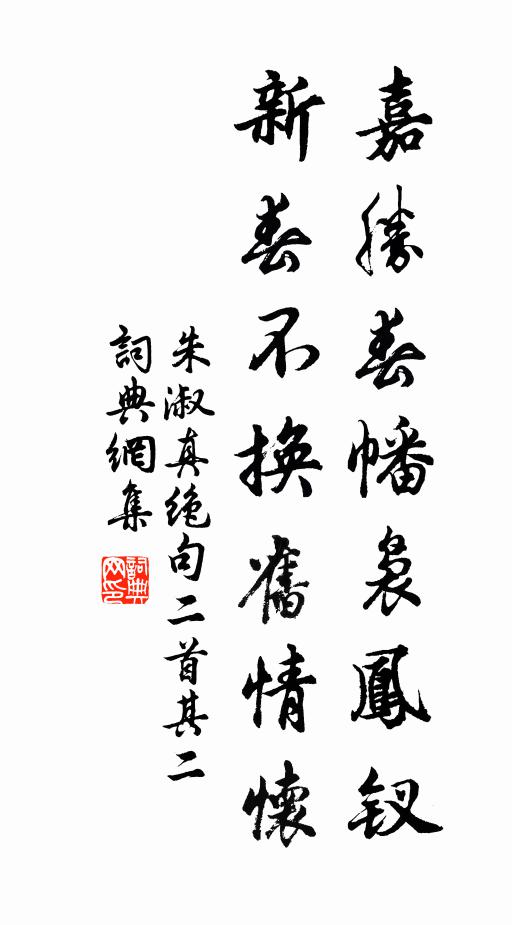 嘉勝春幡裊鳳釵
新春不換舊情懷
朱淑真绝句二首其二
詞典網集
詞典网印